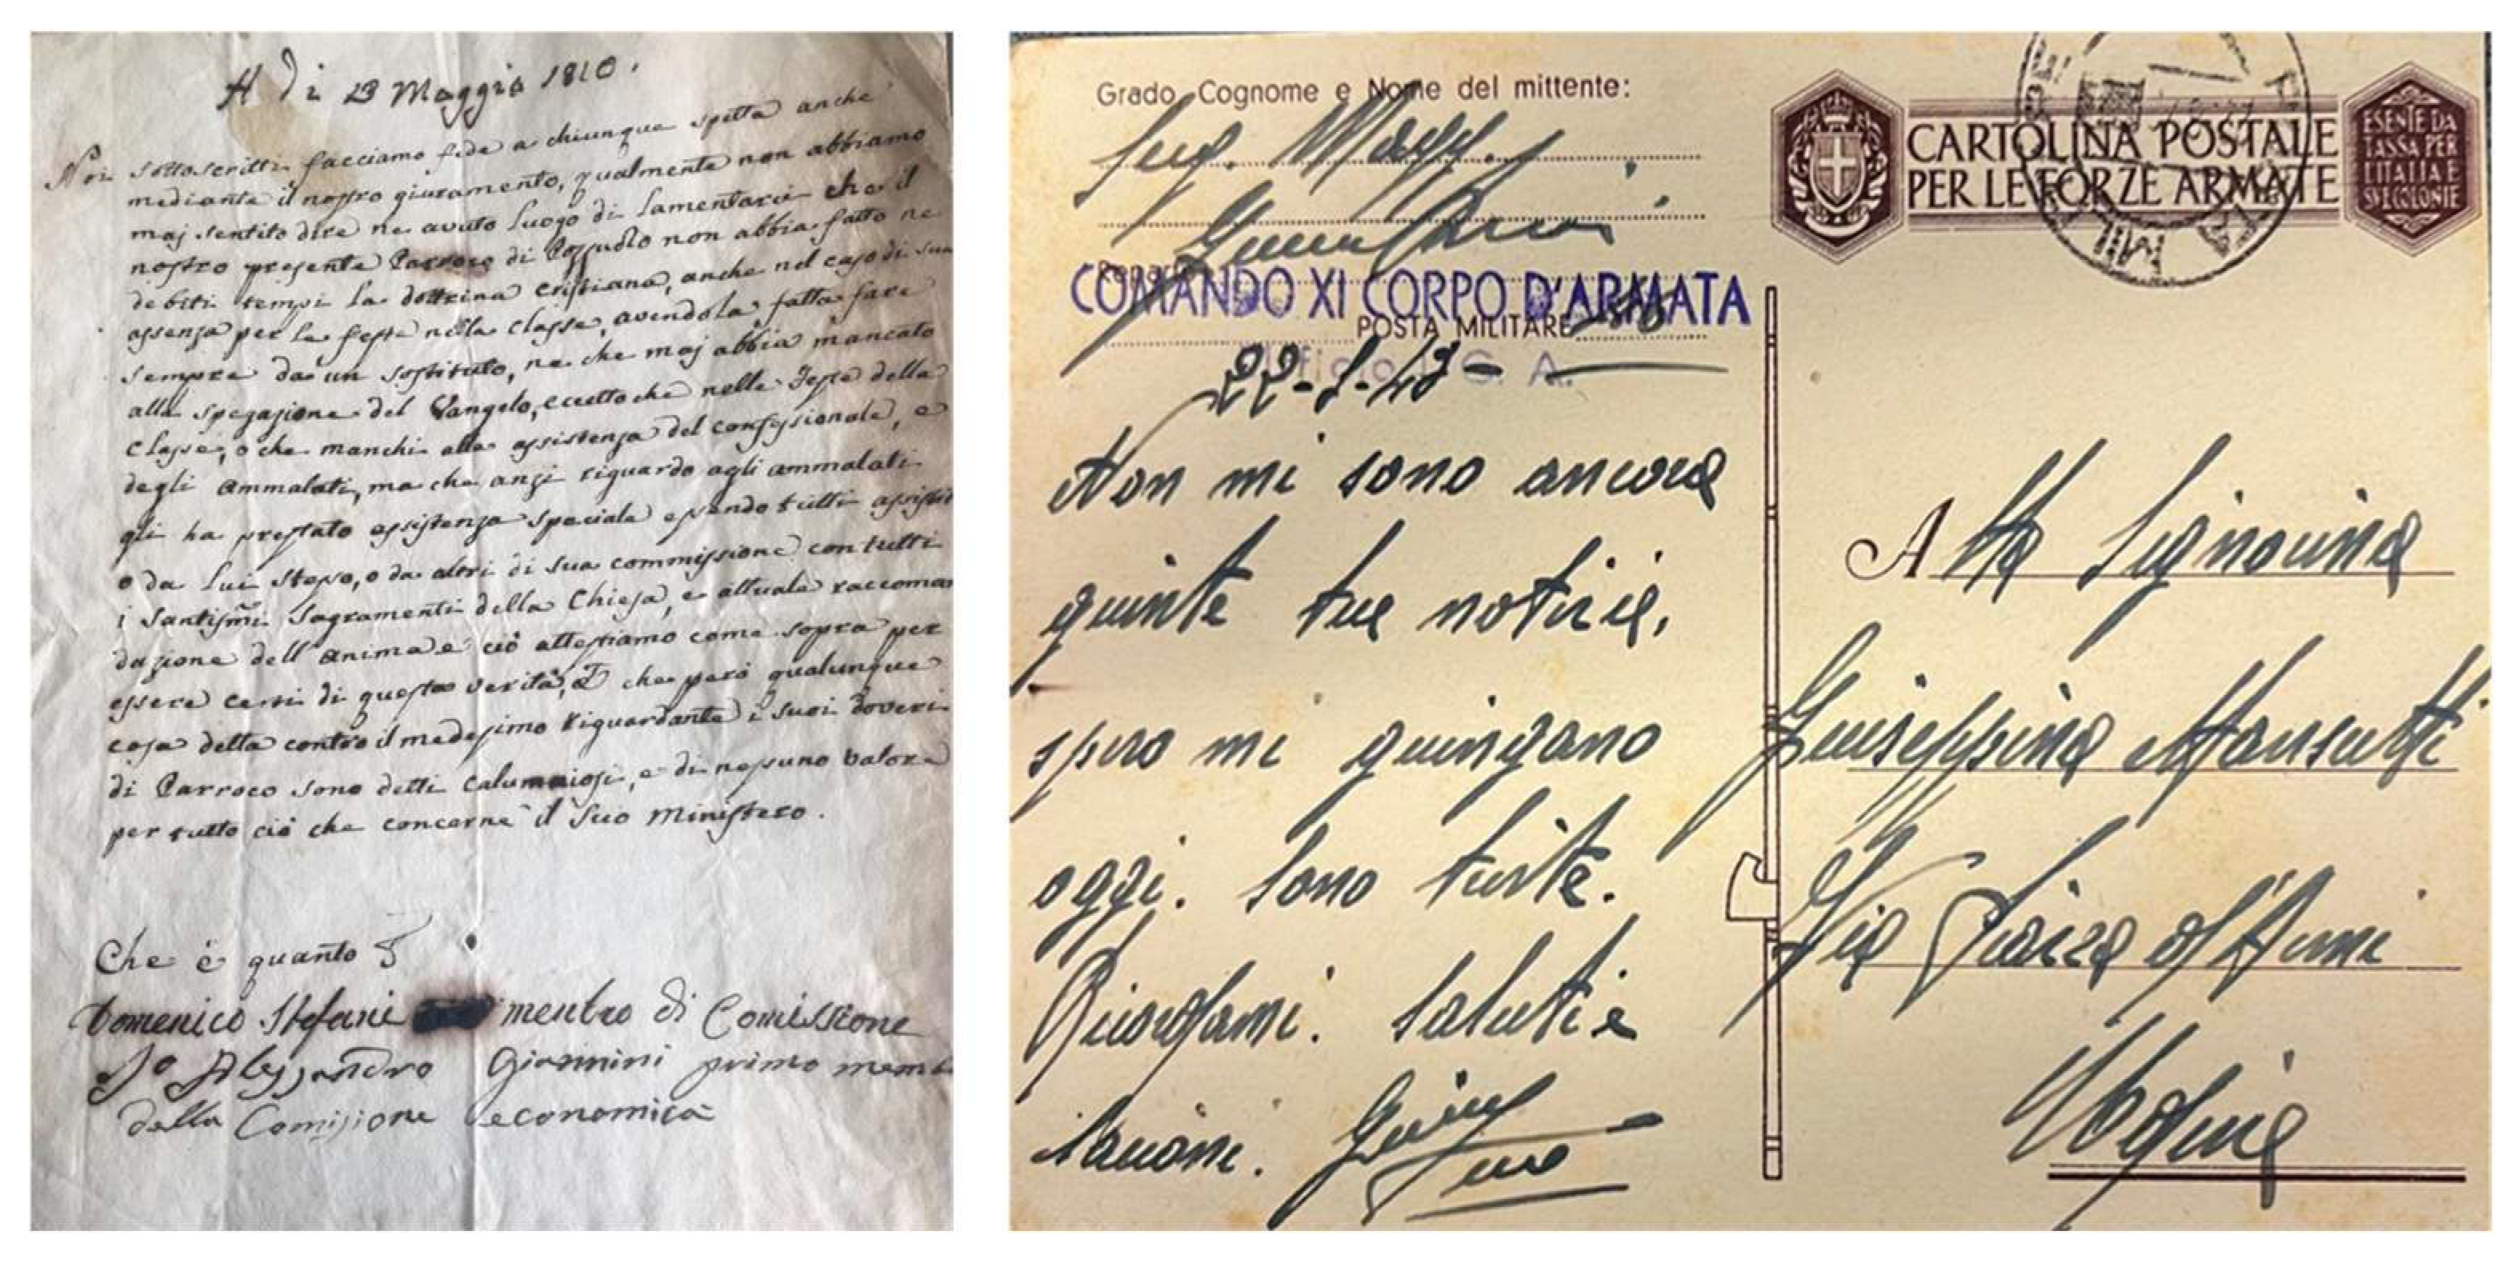 A di 23 Maggio 1810.
Noi sottoscritti facciamo fede a chiunque spetta anche
mediante il nostro giuramento, qualmente non abbiamo
maj sentito dire ne avuto luogo di lamentarci che il
nostro presente Parroco di Pozzuolo non abbia fatto ne
debiti tempi la dottrina cristiana, anche nel caso di sua
assenza per le feste nella classe, avendola fatta fare
sempre da un sostituto, ne che maj abbia mancato
alla spegazione del Vangelo, eccettoche nelle Feste della
Classe, o che manchi alla assistenza del confessionale, e
degli ammalati, ma che anzi riguardo agli ammalati
gli ha prestato assistenza speciale essendo tutti assistiti
o da Lui stesso, o da altri di sua commissione con tutti
i Santissmi Sagramenti della Chiesa, e attuale raccoman
dazione dell'anima e ciò attestiamo come sopra per
essere certi di questa verità, che però qualunque
cosa detta contro il medesimo riguardante i suoi doveri
di Parroco sono detti calunniosi, e di nessuno valore
per tutto ciò che concerne il suo ministero.
Che è quanto
Domenico Stefani membro di Comissione
Io Alessandro Giannini primo memb
della Comissione economica
Grado, Cognome e Nome del mittente:
Serg. Magg.
COMANDO XI CORPO D'ARMATA
POSTA MILITARE
Ufficio G. A.
22-1-42-
Non mi sono ancora
giunte tue notizie,
spero mi giungano
oggi. Sono triste.
Ricordami. Saluti e
bacioni.
CARTOLINA POSTALE
PER LE FORZE ARMATE
ESENTE DA
TASSA PER
L'ITALIA E
SVE COLONIE
Alla Signorina
Giuseppina Mansutti
Via Piazza d'Armi
Udine